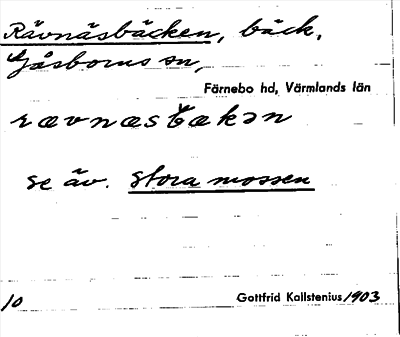 Rävnäsbäcken, bäck,
Gåsborns sn,
Färnebo hd, Värmlands län
rævnæsbækən
se äv. Stora mossen
10 Gottfrid Kallstenius 1903